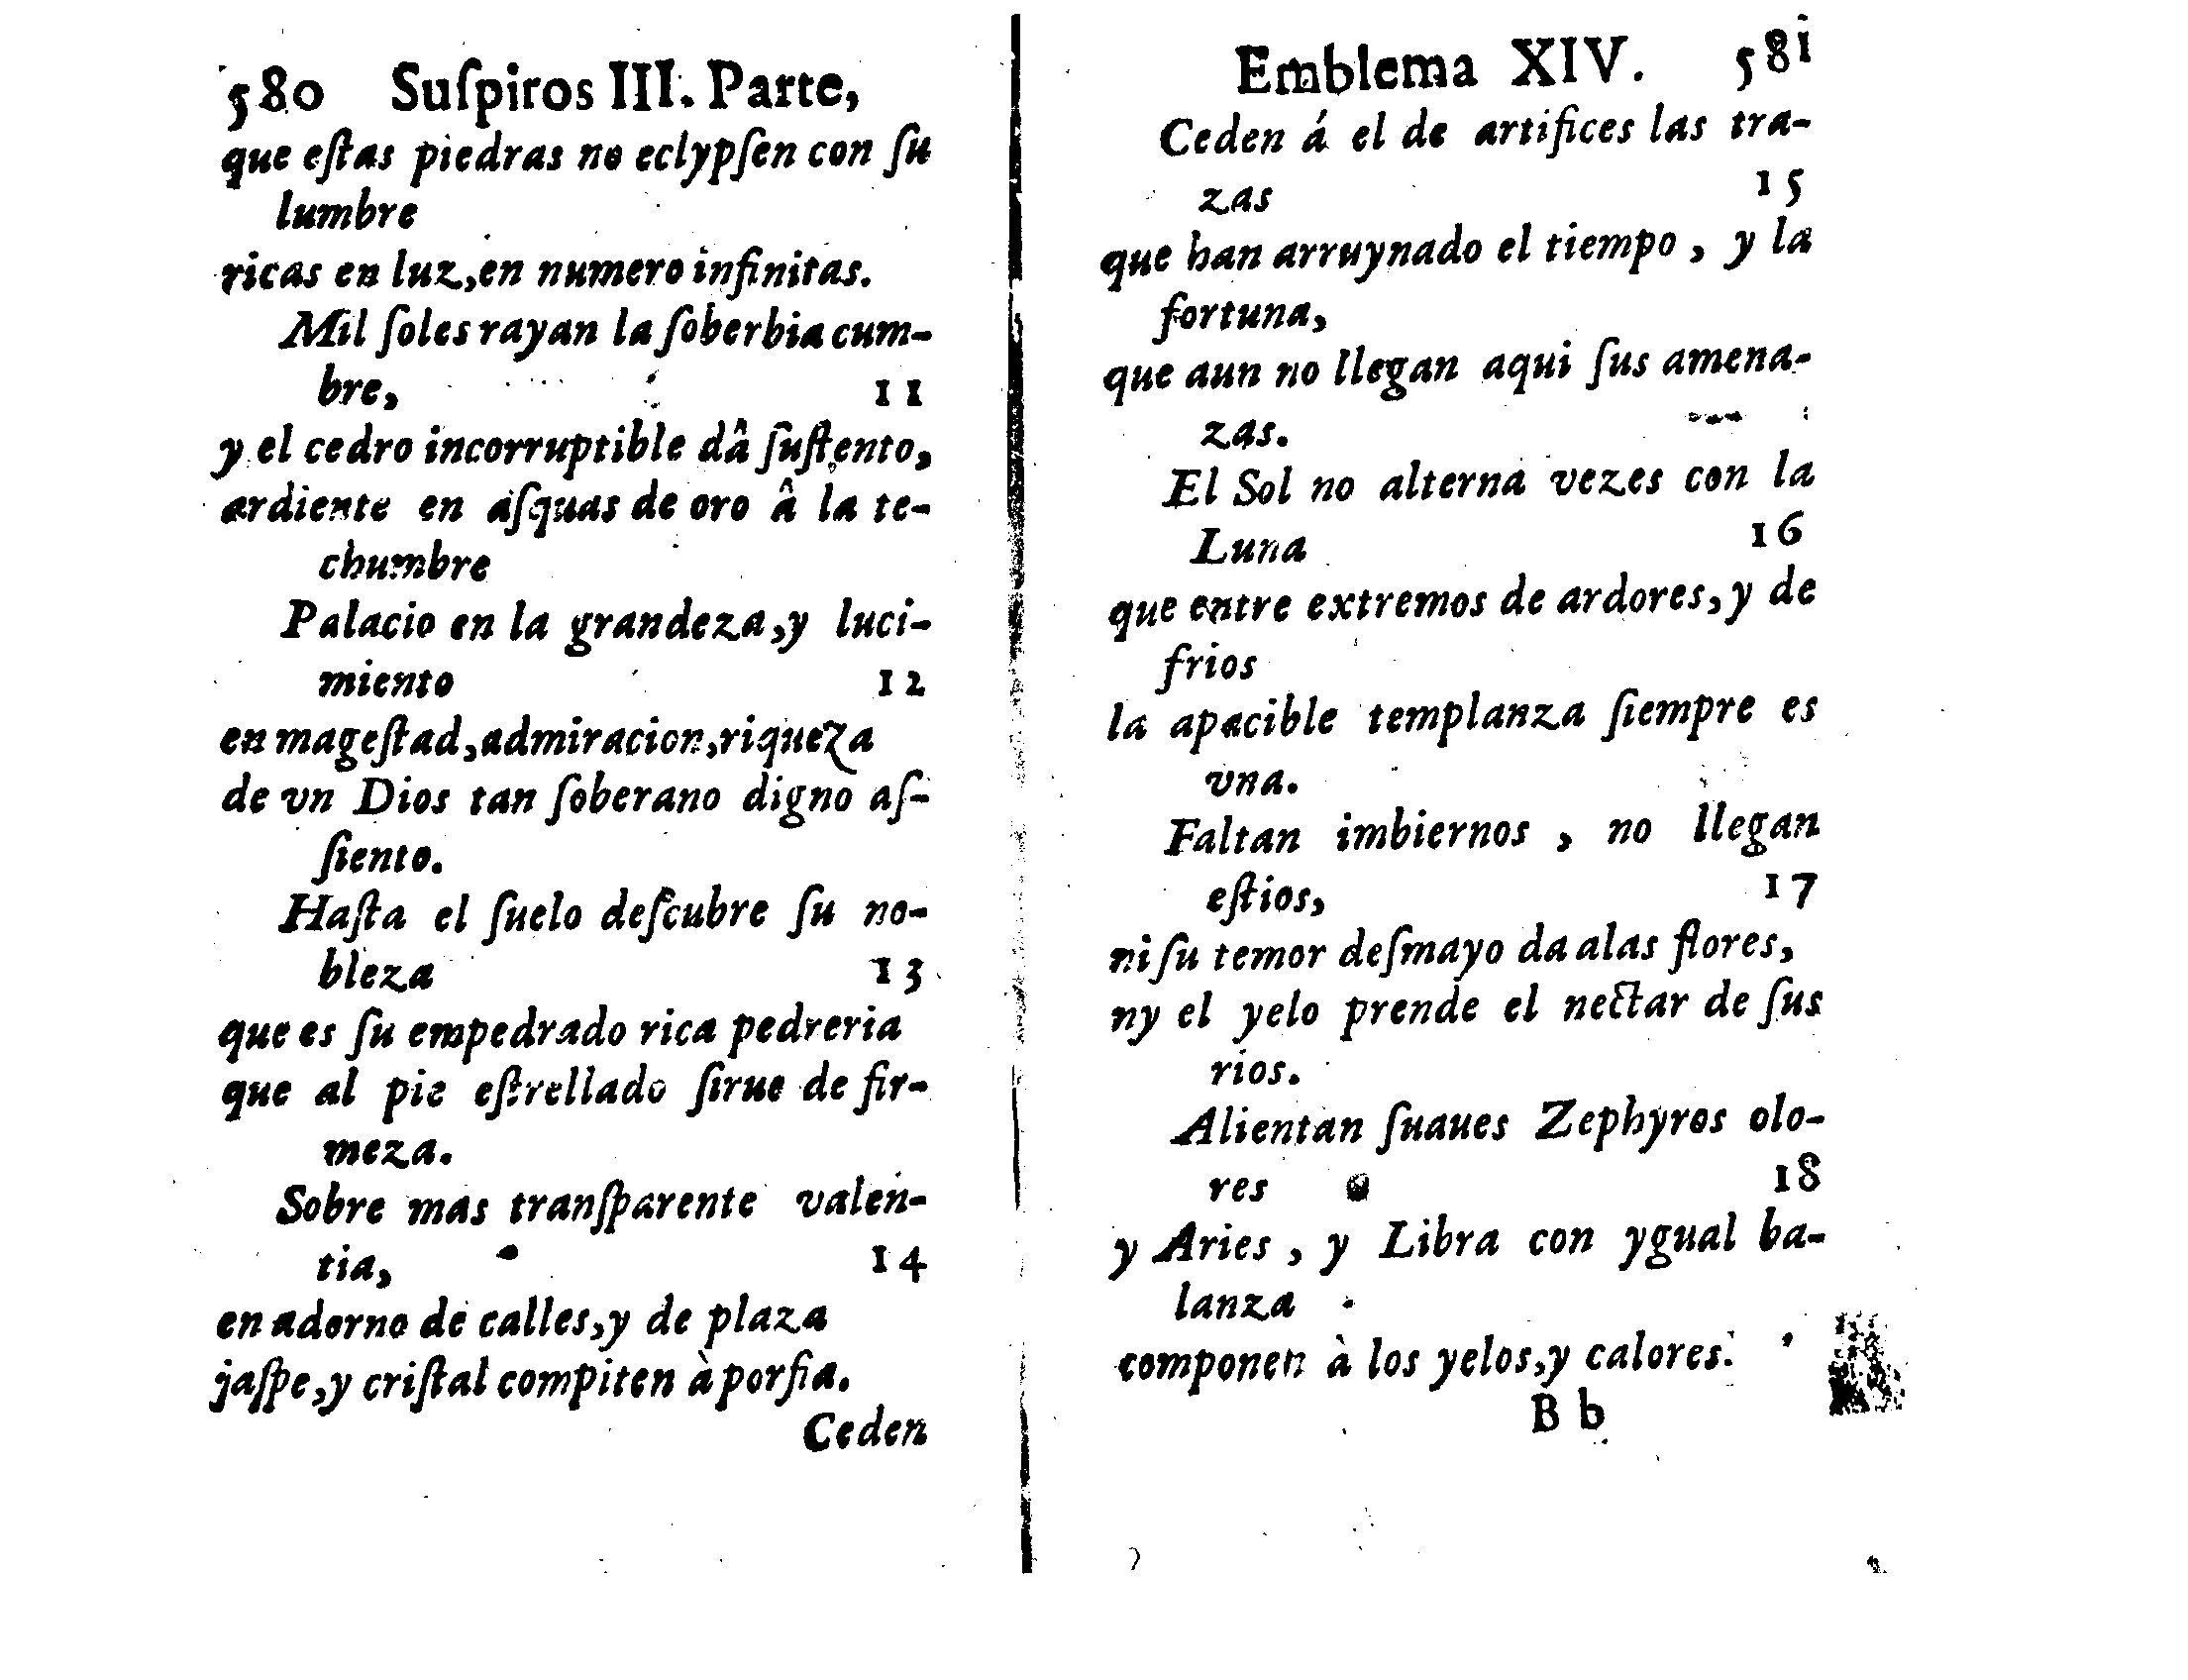 580 Suſpiros III. Parte,
que eſtas piedras no eclypſen con ſu
lumbre
ricas en luz, en numero infinitas.
Mil ſoles rayan la ſoberbia cum-
bre, 11
y el cedro incorruptible dâ ſuſtento,
ardiente en aſquas de oro â la te-
chumbre
Palacio en la grandeza, y luci-
miento 12
en mageſtad, admiracion, riqueza
de vn Dios tan ſoberano digno aſ-
ſiento.
Haſta el ſuelo deſcubre ſu no-
bleza 13
que es ſu empedrado rica pedreria
que al pie eſtrellado ſirue de fir-
meza.
Sobre mas tranſparente valen-
tia, 14
en adorno de calles, y de plaza
jaſpe, y criſtal compiten à porfia.
Ceden
Emblema XIV. 581
Ceden á el de artifices las tra-
zas 15
que han arruynado el tiempo, y la
fortuna,
que aun no llegan aqui ſus amena-
zas.
El Sol no alterna vezes con la
Luna 16
que entre extremos de ardores, y de
frios
la apacible templanza ſiempre es
vna.
Faltan imbiernos, no llegan
eſtios, 17
ni ſu temor deſmayo da alas flores,
ny el yelo prende el nectar de ſus
rios.
Alientan ſuaues Zephyros olo-
res 18
y Aries, y Libra con ygual ba-
lanza
componen à los yelos, y calores.
B b